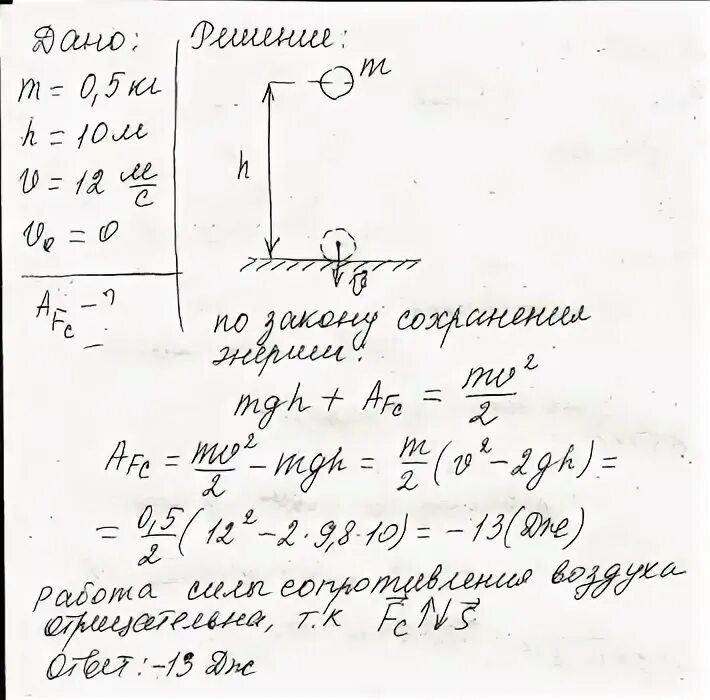 Дано:
m = 0,5 кг
h = 10 м
v = 12 м/с
v₀ = 0
A_Fc – ?
Решение:
m
h
v⃗
по закону сохранения
энергии:
mgh + A_Fc = mv²/2
A_Fc = mv²/2 – mgh = m/2 (v² – 2gh) =
= 0,5/2 (12² – 2·9,8·10) = –13 (Дж)
работа силы сопротивления воздуха
отрицательна, т.к F⃗c ↑↓ S⃗
Ответ: –13 Дж